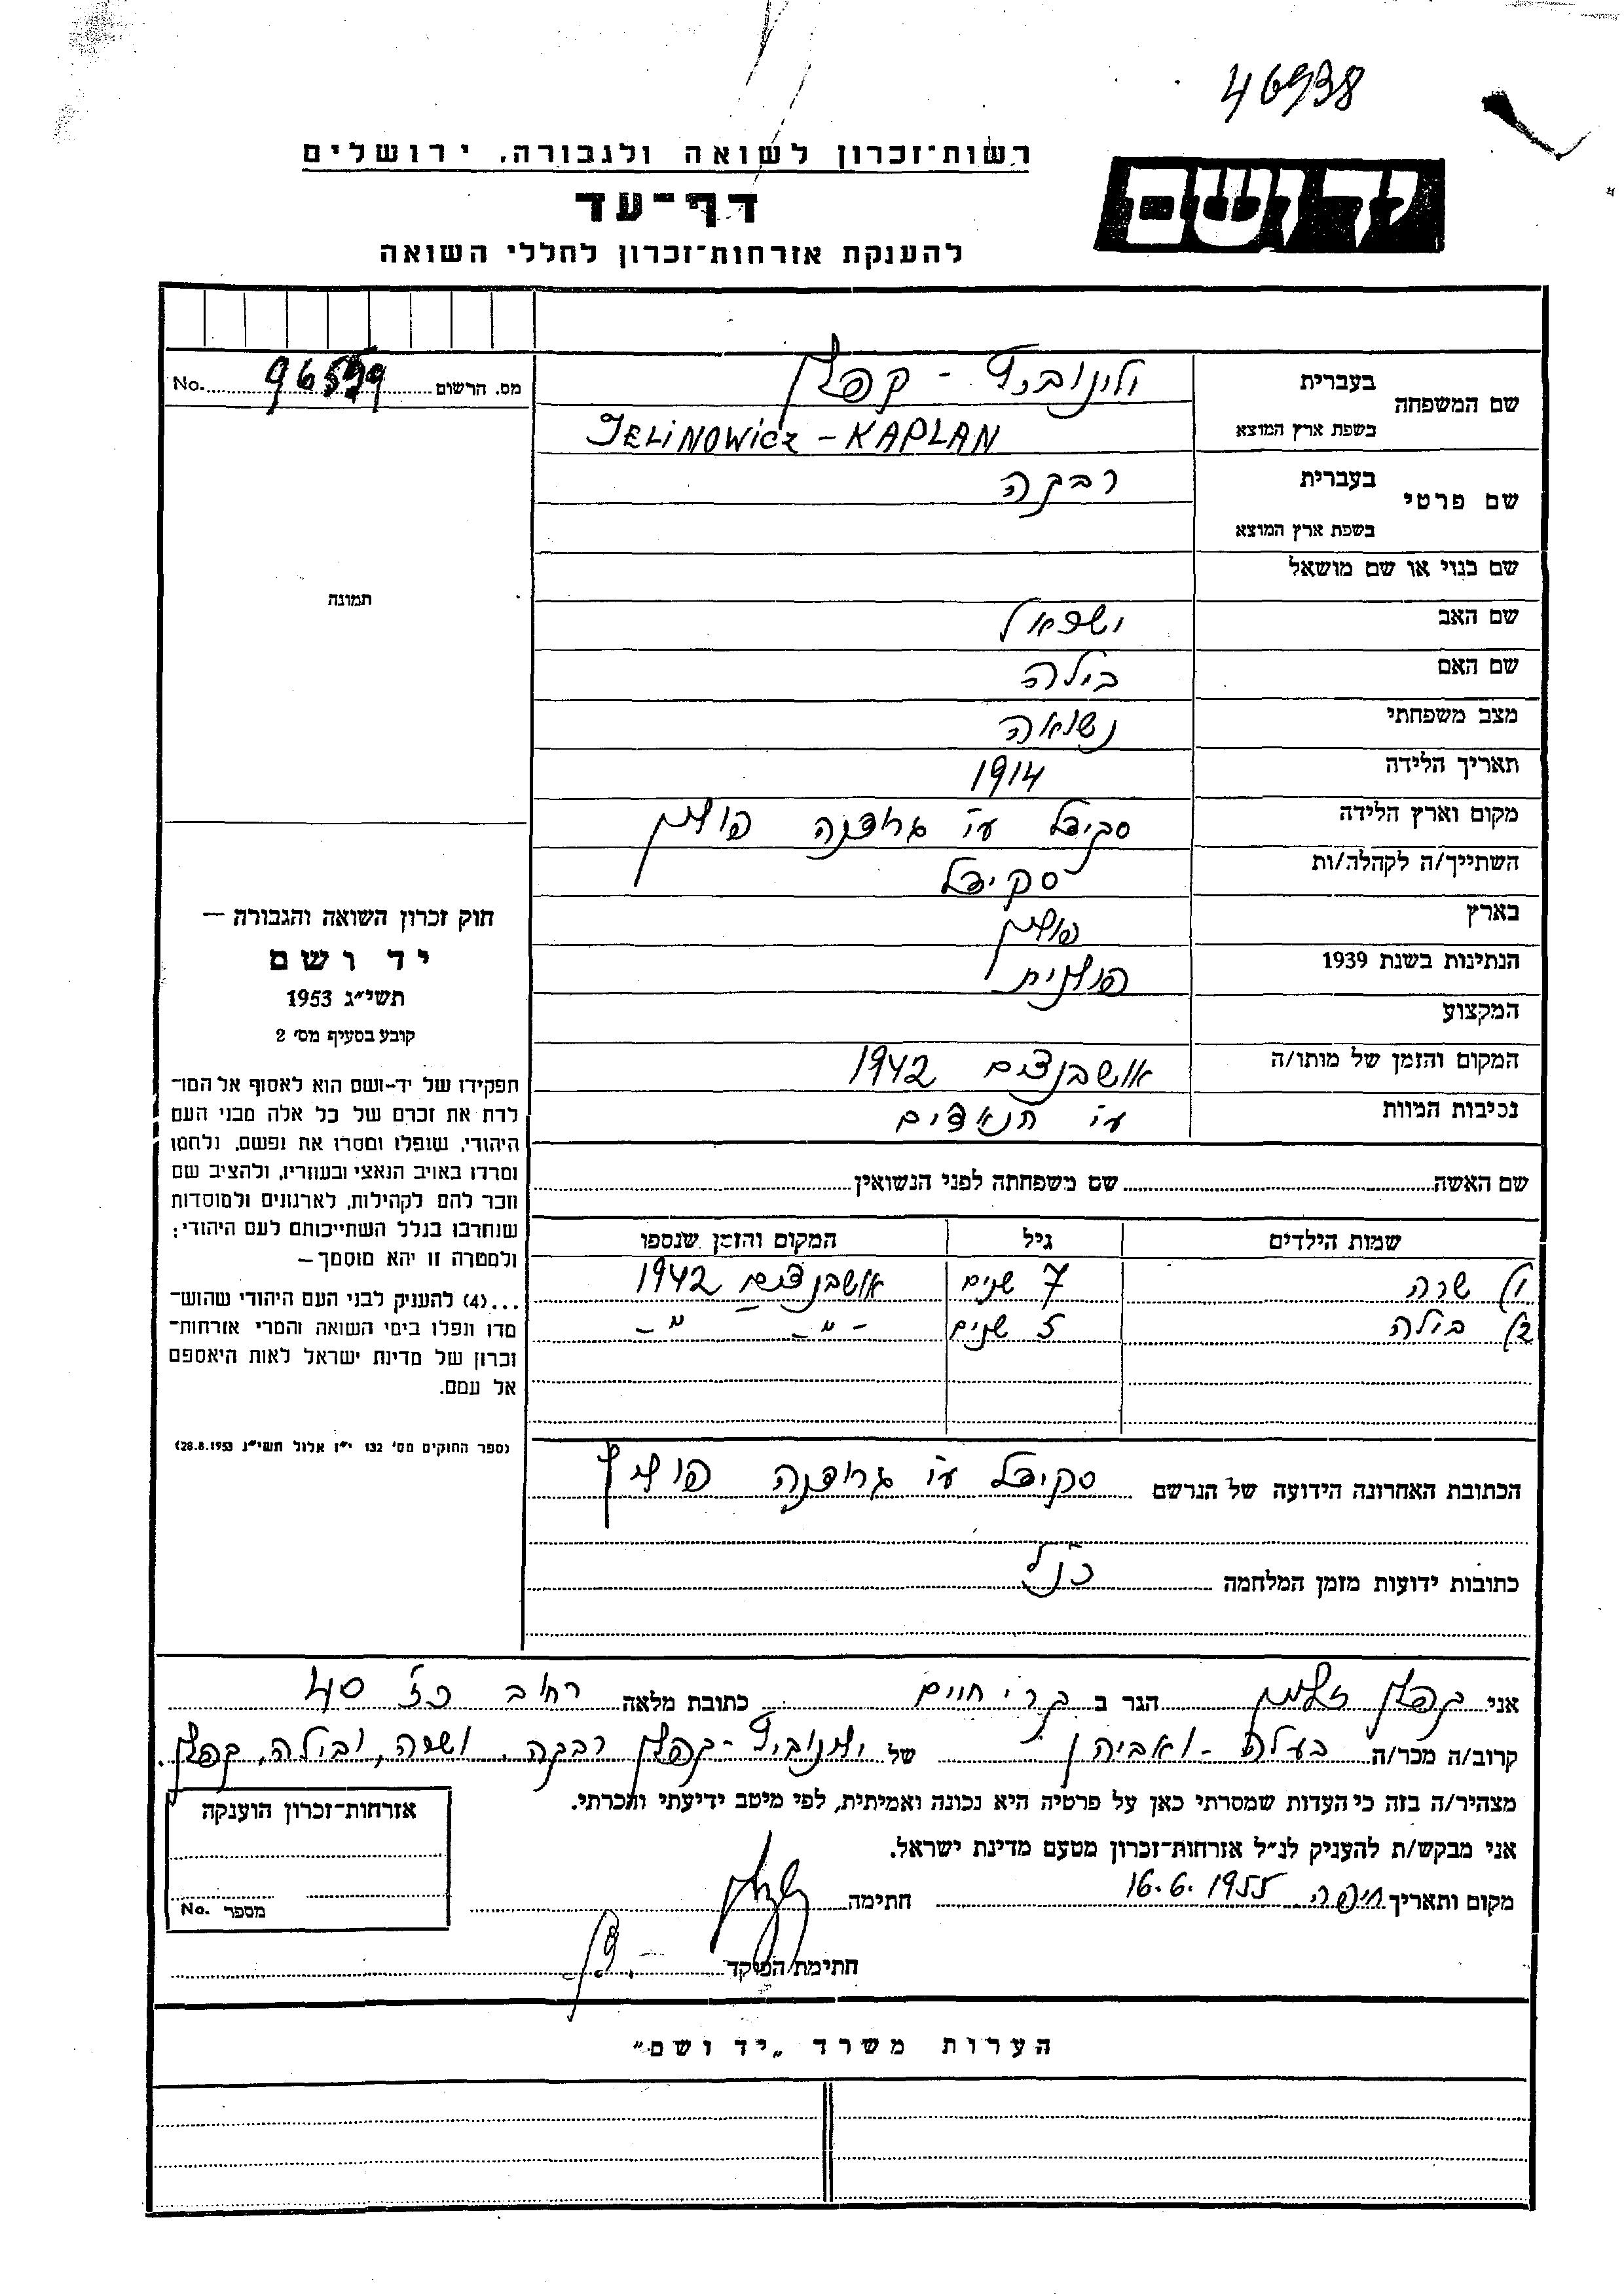 46938
רשות־זכרון לשואה ולגבורה, ירושלים
יד ושם
דף־עד
להענקת אזרחות־זכרון לחללי השואה
מס. הרשום 96599 No.
שם המשפחה
בעברית ילינוביץ - קפלן
בשפת ארץ המוצא JELINOWICZ - KAPLAN
שם פרטי
בעברית רבקה
בשפת ארץ המוצא
שם כנוי או שם מושאל
תמונה
שם האב ישראל
שם האם בילה
מצב משפחתי נשואה
תאריך הלידה 1914
מקום וארץ הלידה סקידל ע"י גרודנה פולין
השתייך/ה לקהלה/ות סקידל
בארץ פולין
הנתינות בשנת 1939 פולנית
המקצוע
המקום והזמן של מותו/ה אושבנצים 1942
נסיבות המוות ע"י הנאצים
חוק זכרון השואה והגבורה —
יד ושם
תשי״ג 1953
קובע בסעיף מס׳ 2
תפקידו של יד-ושם הוא לאסוף אל המו־
לדת את זכרם של כל אלה מבני העם
היהודי, שנפלו ומסרו את נפשם, נלחמו
ומרדו באויב הנאצי ובעוזריו, ולהציב שם
וזכר להם לקהילות, לארגונים ולמוסדות
שנחרבו בגלל השתייכותם לעם היהודי;
ולמטרה זו יהא מוסמך—
...(4) להעניק לבני העם היהודי שהוש־
מדו ונפלו בימי השואה והמרי אזרחות־
זכרון של מדינת ישראל לאות היאספם
אל עמם.
(ספר החוקים מס׳ 132 י״ז אלול תשי״ג 28.8.1953)
שם האשה שם משפחתה לפני הנשואין
שמות הילדים גיל המקום והזמן שנספו
1) שרה 7 שנים אושבנצים 1942
2) בילה 5 שנים -"- -"-
הכתובת האחרונה הידועה של הנרשם סקידל ע"י גרודנה פולין
כתובות ידועות מזמן המלחמה כנ"ל
אני קפלן זלמן הגר ב קרית חיים כתובת מלאה רחוב כז 40
קרוב/ה מכר/ה בעלה - ואביהן של ילינוביץ - קפלן רבקה, ושרה, ובילה, קפלן.
מצהיר/ה בזה כי העדות שמסרתי כאן על פרטיה היא נכונה ואמיתית, לפי מיטב ידיעתי והכרתי.
אני מבקש/ת להעניק לנ״ל אזרחות־זכרון מטעם מדינת ישראל.
מקום ותאריך חיפה 16.6.1955 חתימה
חתימת הפוקד
אזרחות־זכרון הוענקה
מספר No.
הערות משרד „יד ושם״